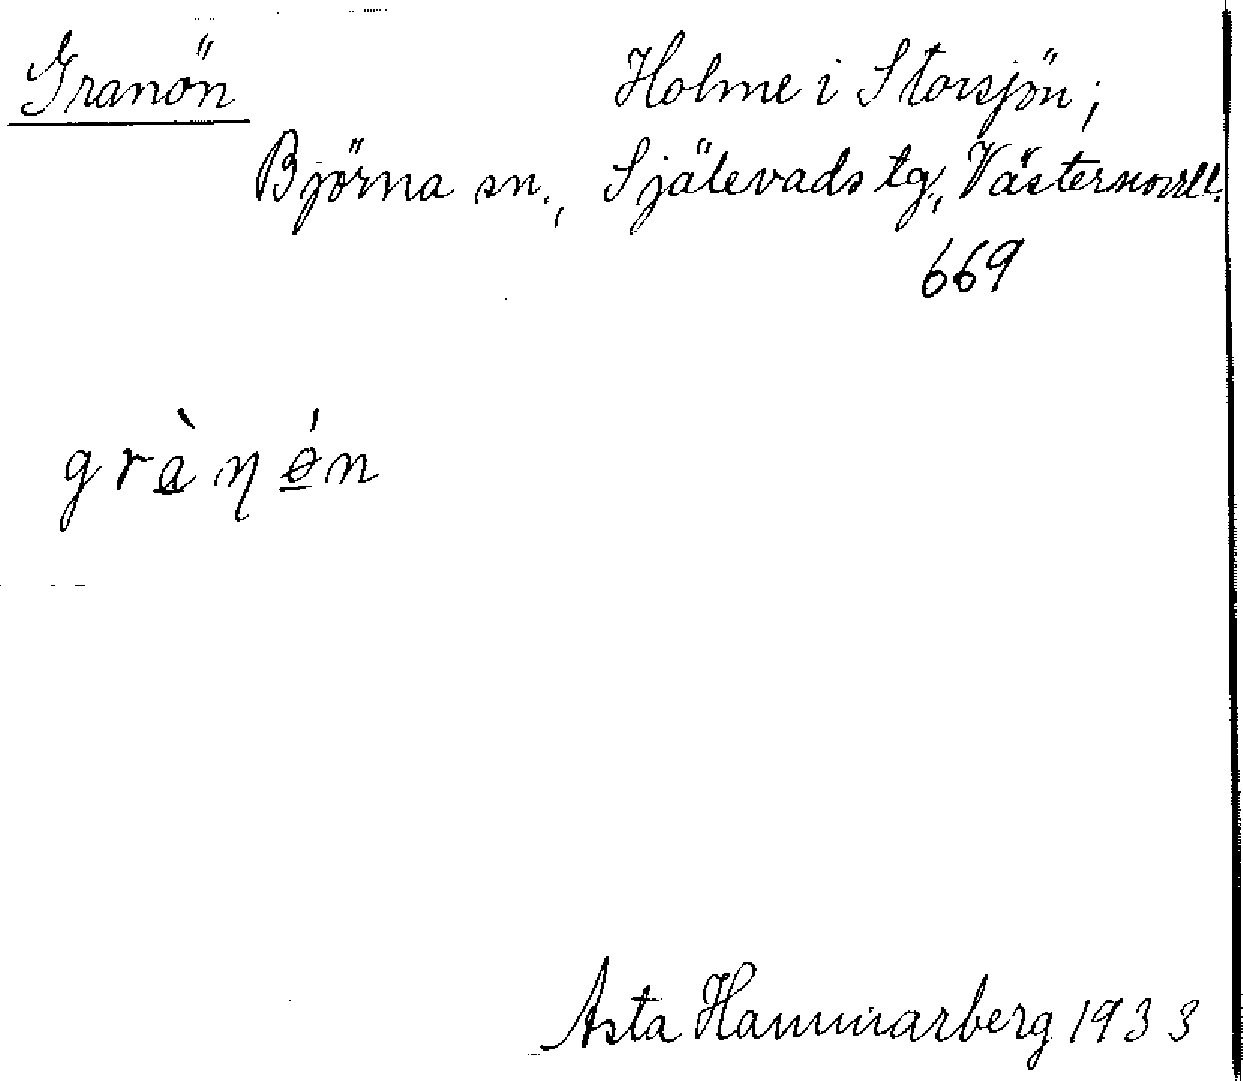 Granön Holme i Storsjön;
Björna sn., Själevads tg., Västernorrl l.
669
grànǿn
Asta Hammarberg 1933